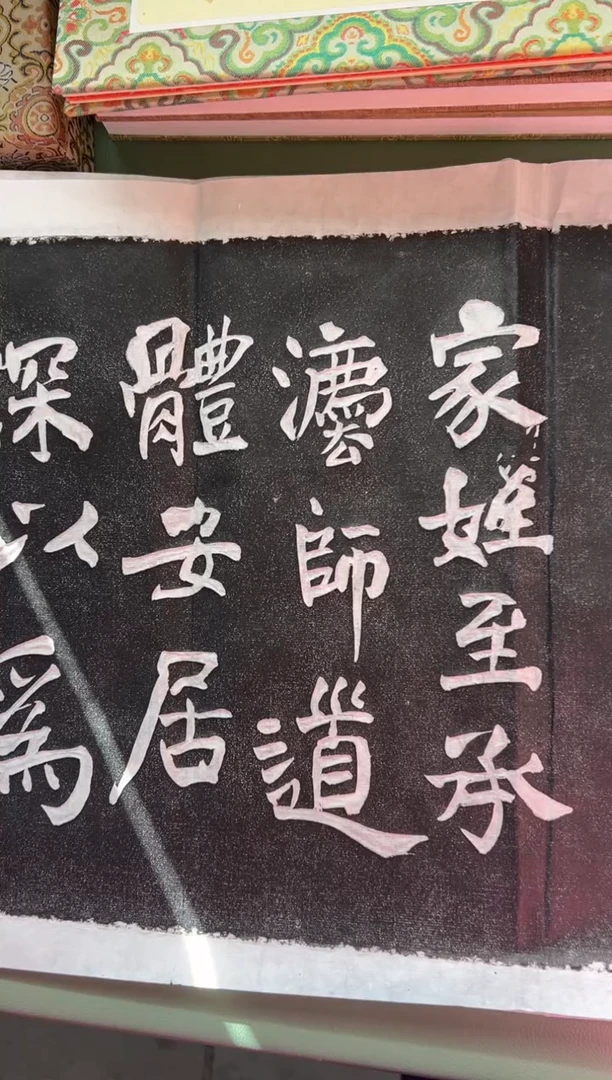 家姪至承
灋師道
體安居
深以爲